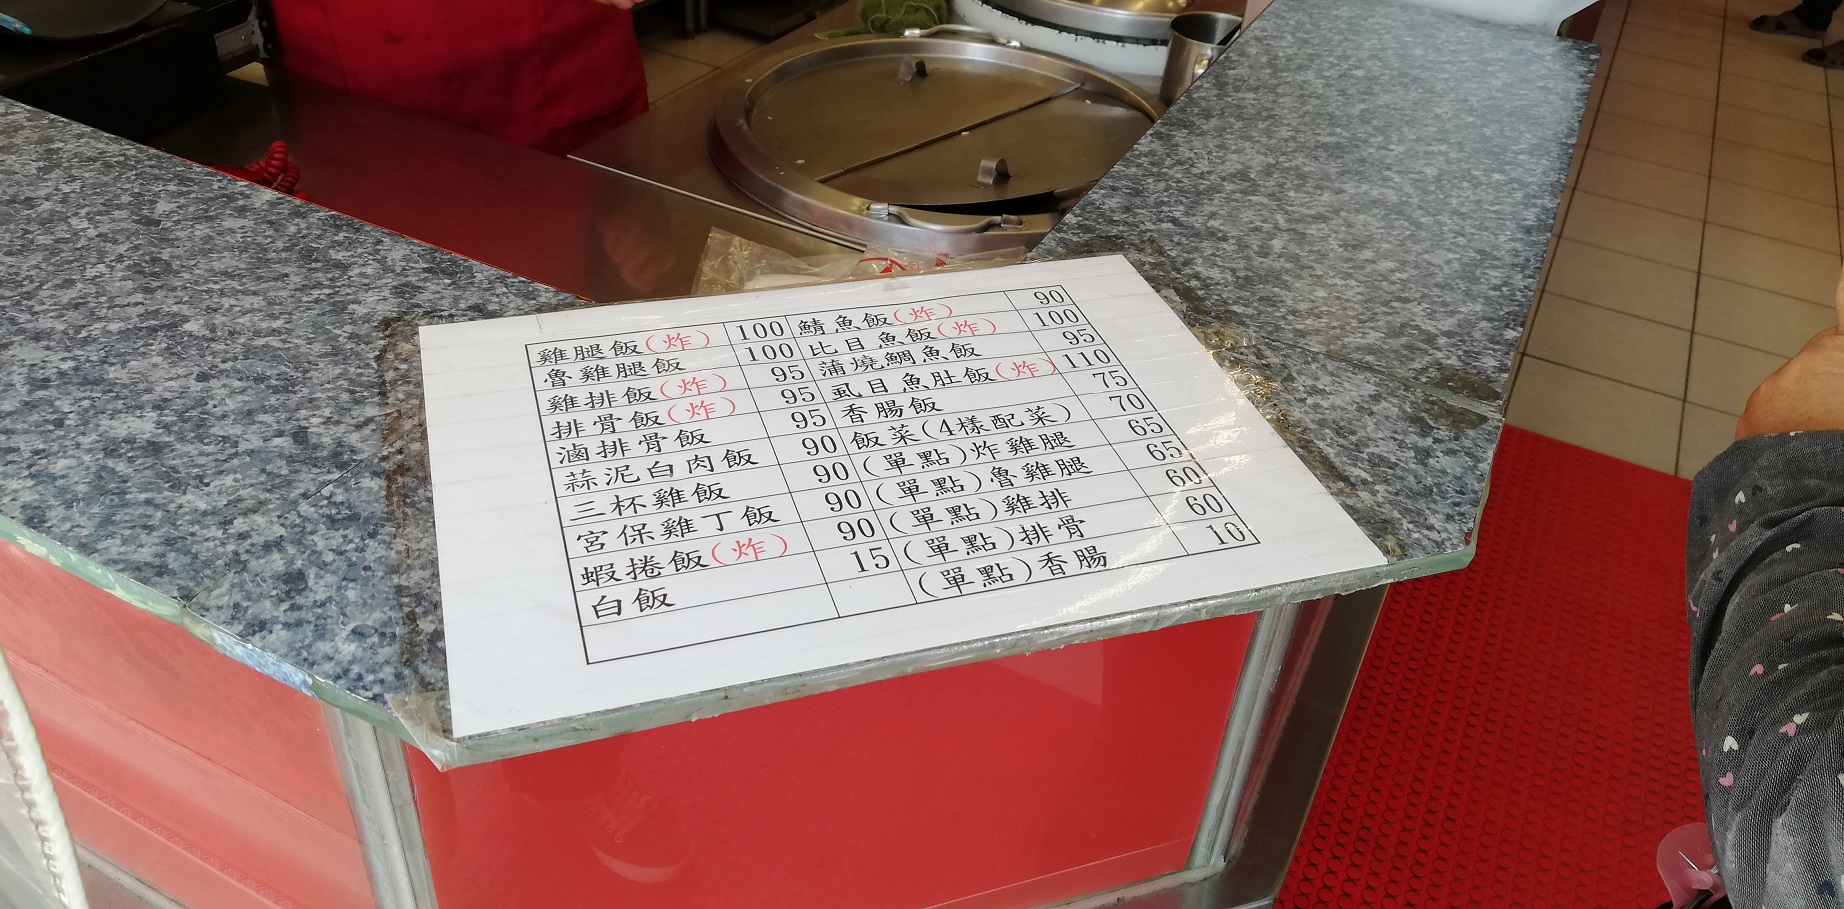 雞腿飯(炸) 100 鯖魚飯(炸) 90
魯雞腿飯 100 比目魚飯(炸) 100
雞排飯(炸) 95 蒲燒鯛魚飯 95
排骨飯(炸) 95 虱目魚肚飯(炸) 110
滷排骨飯 95 香腸飯 75
蒜泥白肉飯 90 飯菜(4樣配菜) 70
三杯雞飯 90 (單點)炸雞腿 65
宮保雞丁飯 90 (單點)魯雞腿 65
蝦捲飯(炸) 90 (單點)雞排 60
白飯 15 (單點)排骨 60
(單點)香腸 10